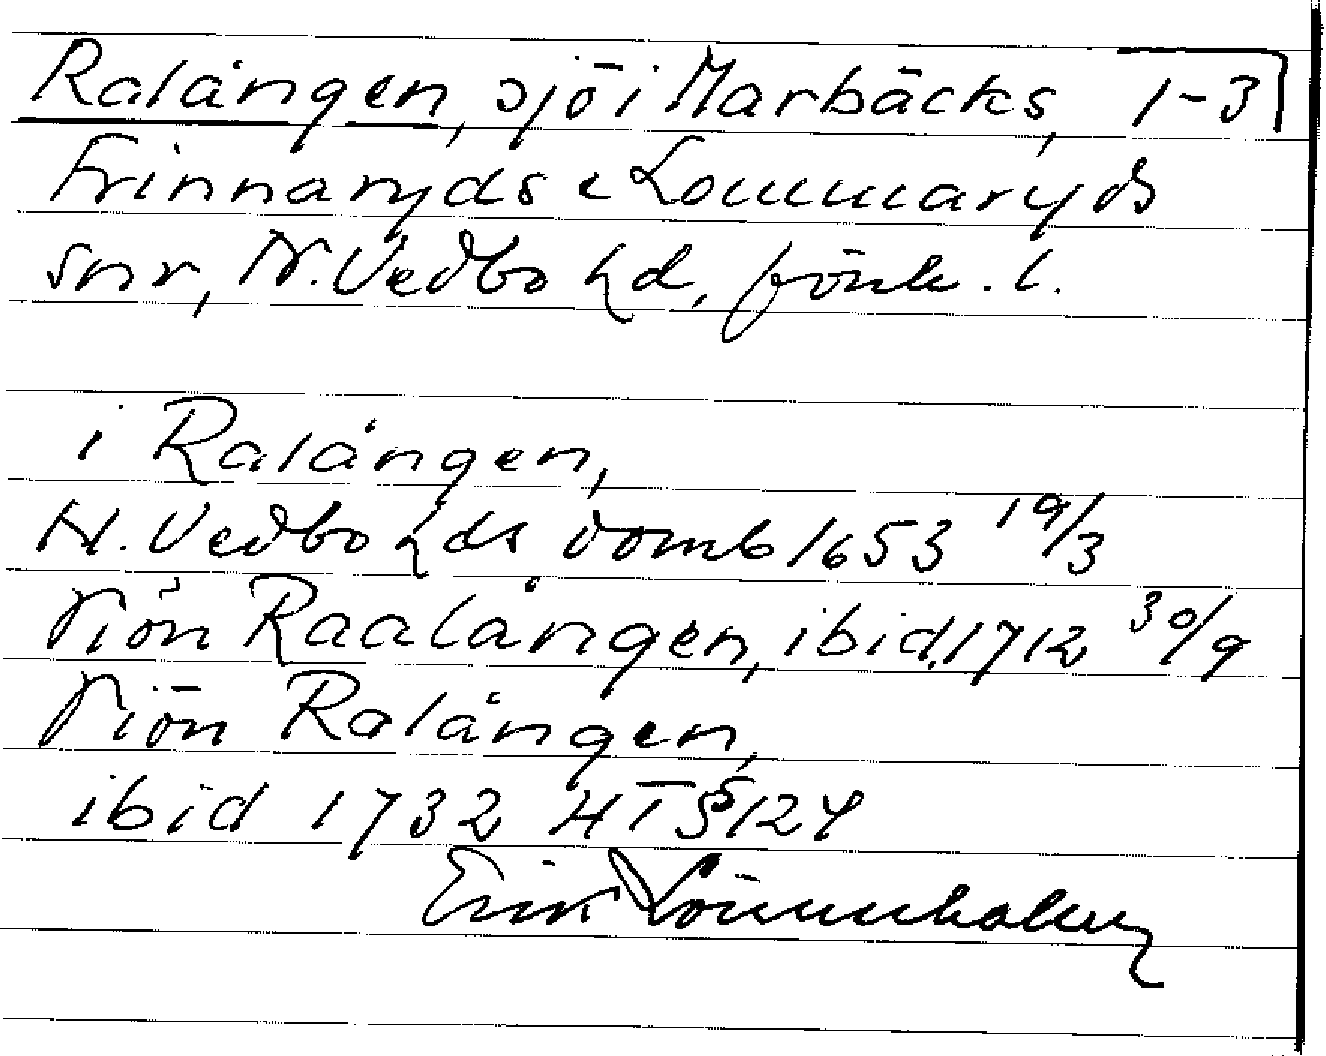 Ralången, sjö i Marbäcks, 1-3
Frinnaryds o Lommaryds
snr, N. Vedbo hd, Jönk. l.
i Ralången,
N. Vedbo hds domb 1653 19/3
Siön Raalången, ibid. 1712 30/9
Siön Ralången,
ibid 1732 HT § 124
Erik Lönnerholm